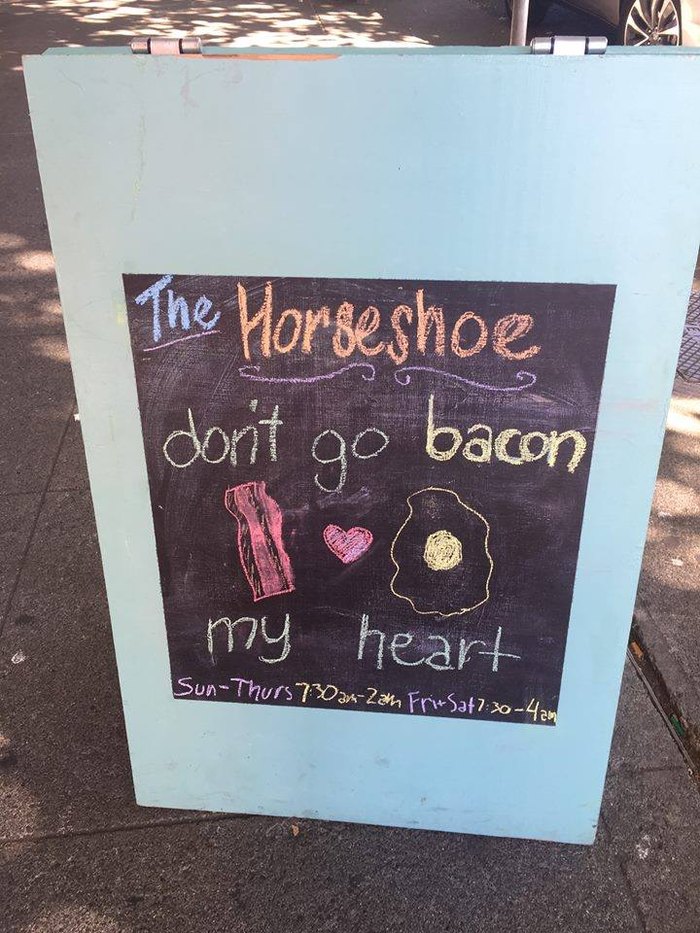 The Horseshoe
don't go bacon
my heart
Sun-Thurs 7:30am-2am Fri+Sat 7:30-4am